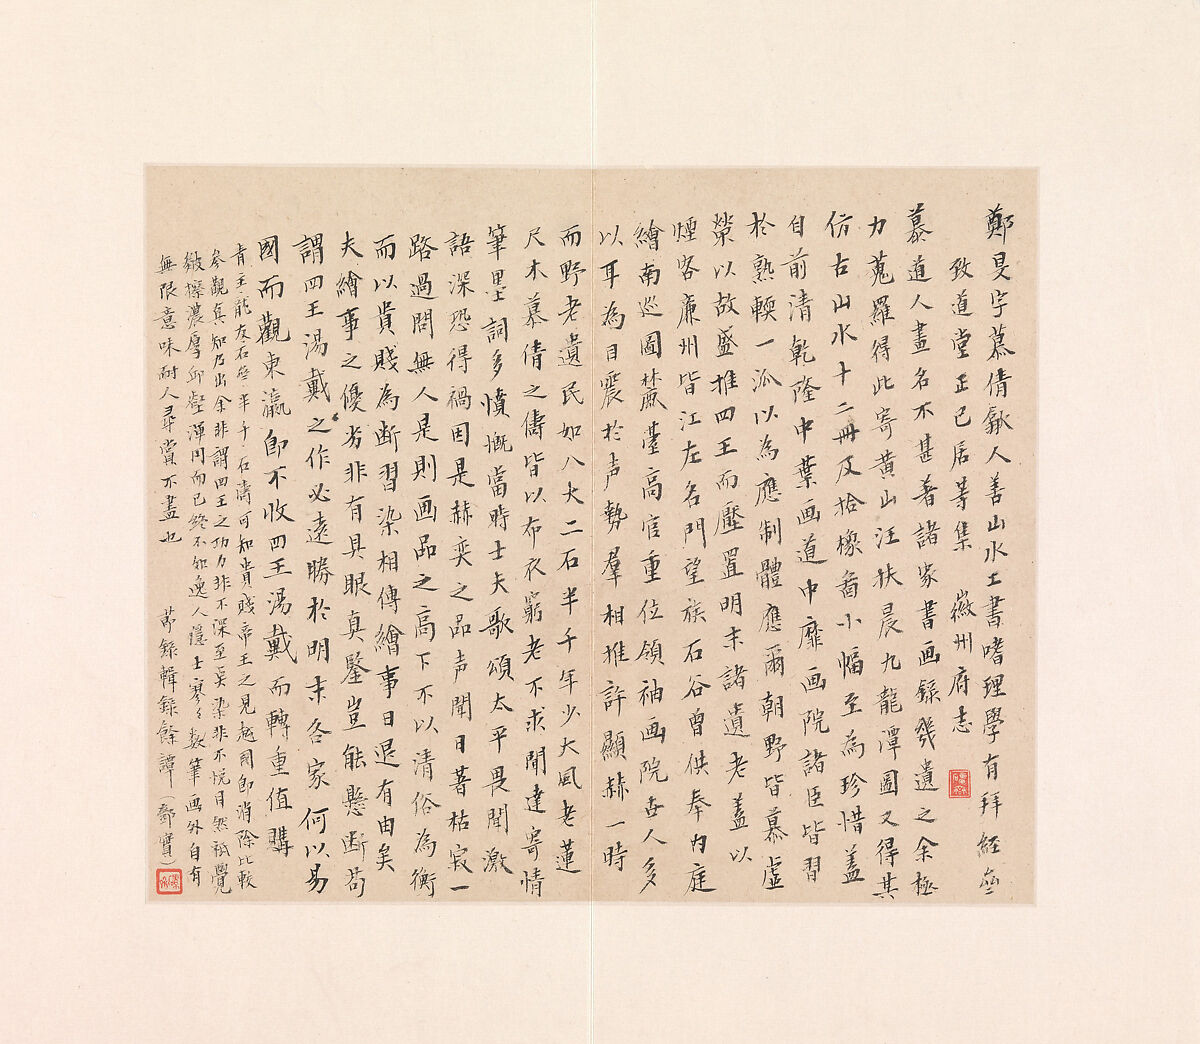 鄭旻字慕倩歙人善山水工書嗜理學有拜經齋
致道堂正己居等集 徽州府志
慕道人畫名不甚著諸家書画錄幾遺之余極
力蒐羅得此寄黃山汪扶晨九龍潭圖又得其
仿古山水十二冊及拾橡圖小幅至為珍惜蓋
自前清乾隆中葉画道中靡画院諸臣皆習
於熟輭一派以為應制體應爾朝野皆慕虛
榮以故盛推四王而壓置明末諸遺老蓋以
煙客廉州皆江左名門望族石谷曾供奉內庭
繪南巡圖麓臺高官重位領袖画院世人多
以耳為目震於声勢羣相推許顯赫一時
而野老遺民如八大二石半千年少大風老蓮
尺木慕倩之儔皆以布衣窮老不求聞達寄情
筆墨詞多憤慨當時士夫歌頌太平畏聞激
語深恐得禍因是赫奕之品声聞日著枯寂一
路過問無人是則画品之高下不以清俗為衡
而以貴賤為斷習染相傳繪事日退有由矣
夫繪事之優劣非有具眼真鑒豈能懸斷苟
謂四王湯戴之作必遠勝於明末各家何以易
國而觀東瀛即不收四王湯戴而轉重值購
青主龍友石谿半千石濤可知貴賤帝王之見越國即消除比較
參觀真知乃出余非謂四王之功力非不深至吳染非不悅目然祇覺
皴擦濃厚邱壑渾円而已終不如逸人隱士寥々數筆画外自有
無限意味耐人尋賞不盡也 節錄輯錄餘譚（鄧實）